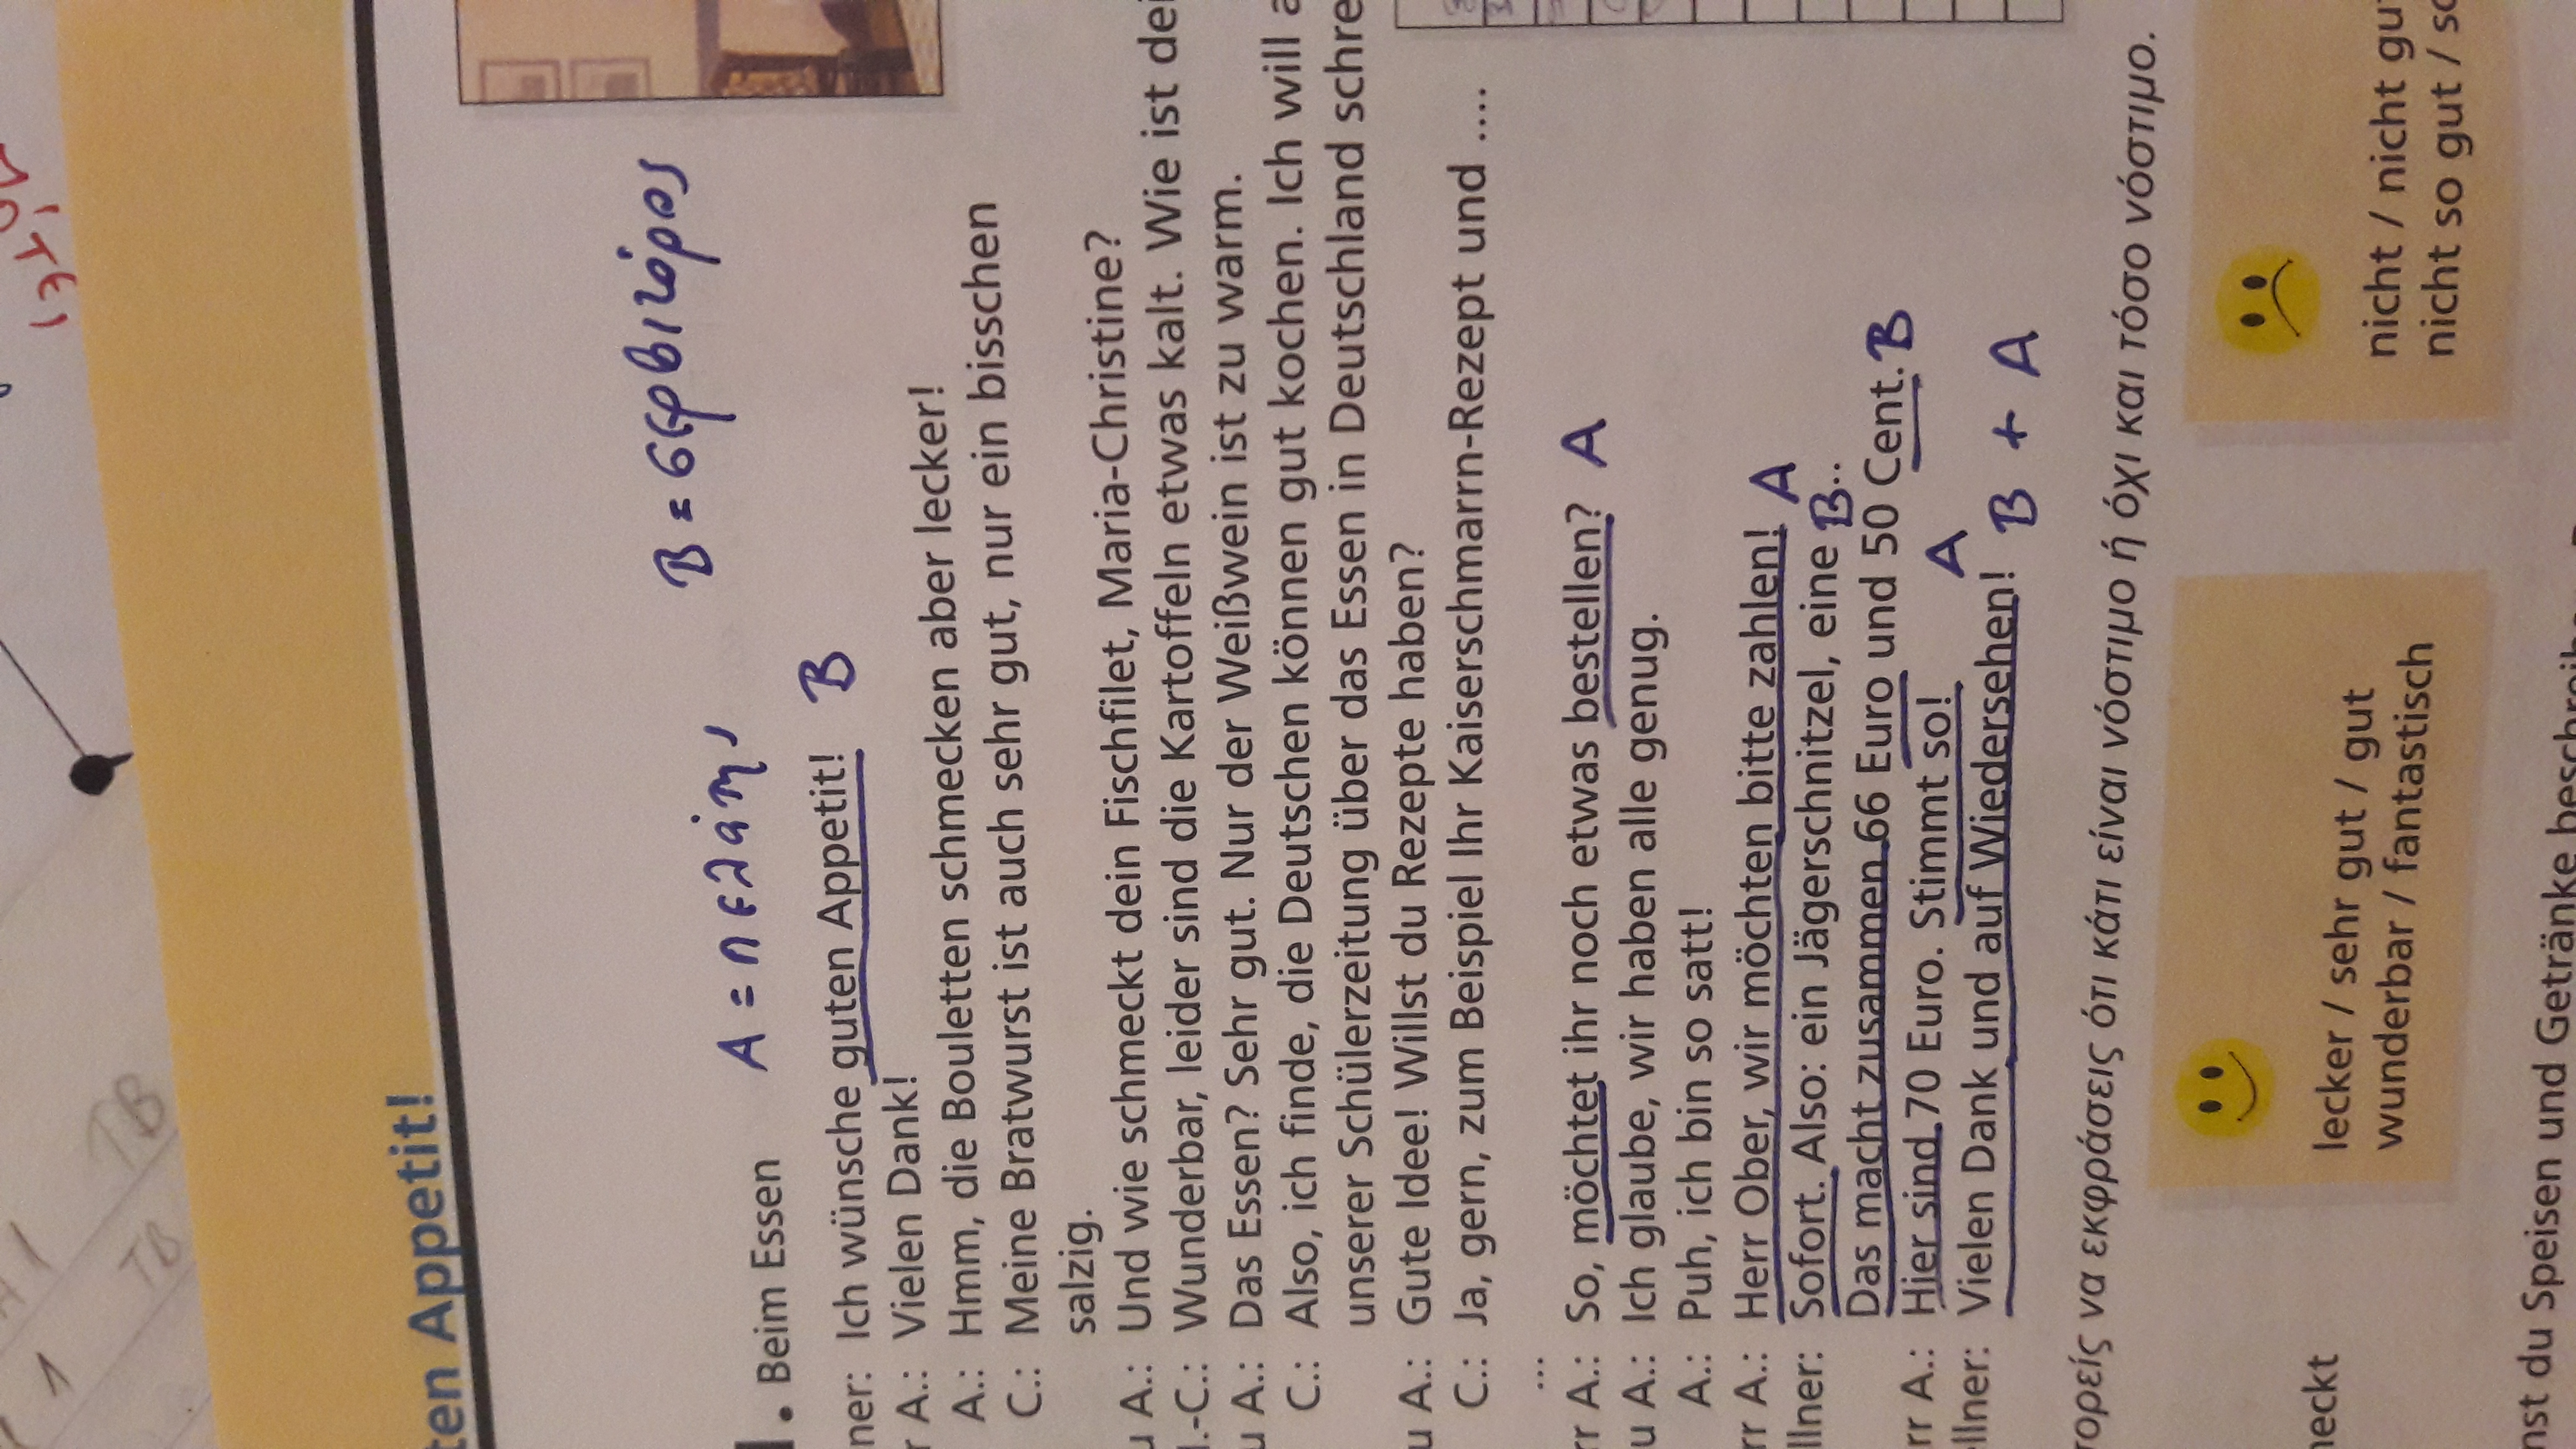 ten Appetit!
A = πελάτης B = σερβιτόρος
1 TB
TB
. Beim Essen
ner: Ich wünsche guten Appetit! B
r A.: Vielen Dank!
A.: Hmm, die Bouletten schmecken aber lecker!
C.: Meine Bratwurst ist auch sehr gut, nur ein bisschen
salzig.
u A.: Und wie schmeckt dein Fischfilet, Maria-Christine?
.-C.: Wunderbar, leider sind die Kartoffeln etwas kalt. Wie ist dei
u A.: Das Essen? Sehr gut. Nur der Weißwein ist zu warm.
C.: Also, ich finde, die Deutschen können gut kochen. Ich will a
unserer Schülerzeitung über das Essen in Deutschland schre
u A.: Gute Idee! Willst du Rezepte haben?
C.: Ja, gern, zum Beispiel Ihr Kaiserschmarrn-Rezept und ....
...
rr A.: So, möchtet ihr noch etwas bestellen? A
u A.: Ich glaube, wir haben alle genug.
A.: Puh, ich bin so satt!
rr A.: Herr Ober, wir möchten bitte zahlen! A
llner: Sofort. Also: ein Jägerschnitzel, eine B...
Das macht zusammen 66 Euro und 50 Cent. B
rr A.: Hier sind 70 Euro. Stimmt so! A
llner: Vielen Dank und auf Wiedersehen! B + A
ορείς να εκφράσεις ότι κάτι είναι νόστιμο ή όχι και τόσο νόστιμο.
neckt
lecker / sehr gut / gut
wunderbar / fantastisch
nicht / nicht gu
nicht so gut / so
nst du Speisen und Getränke beschreibe